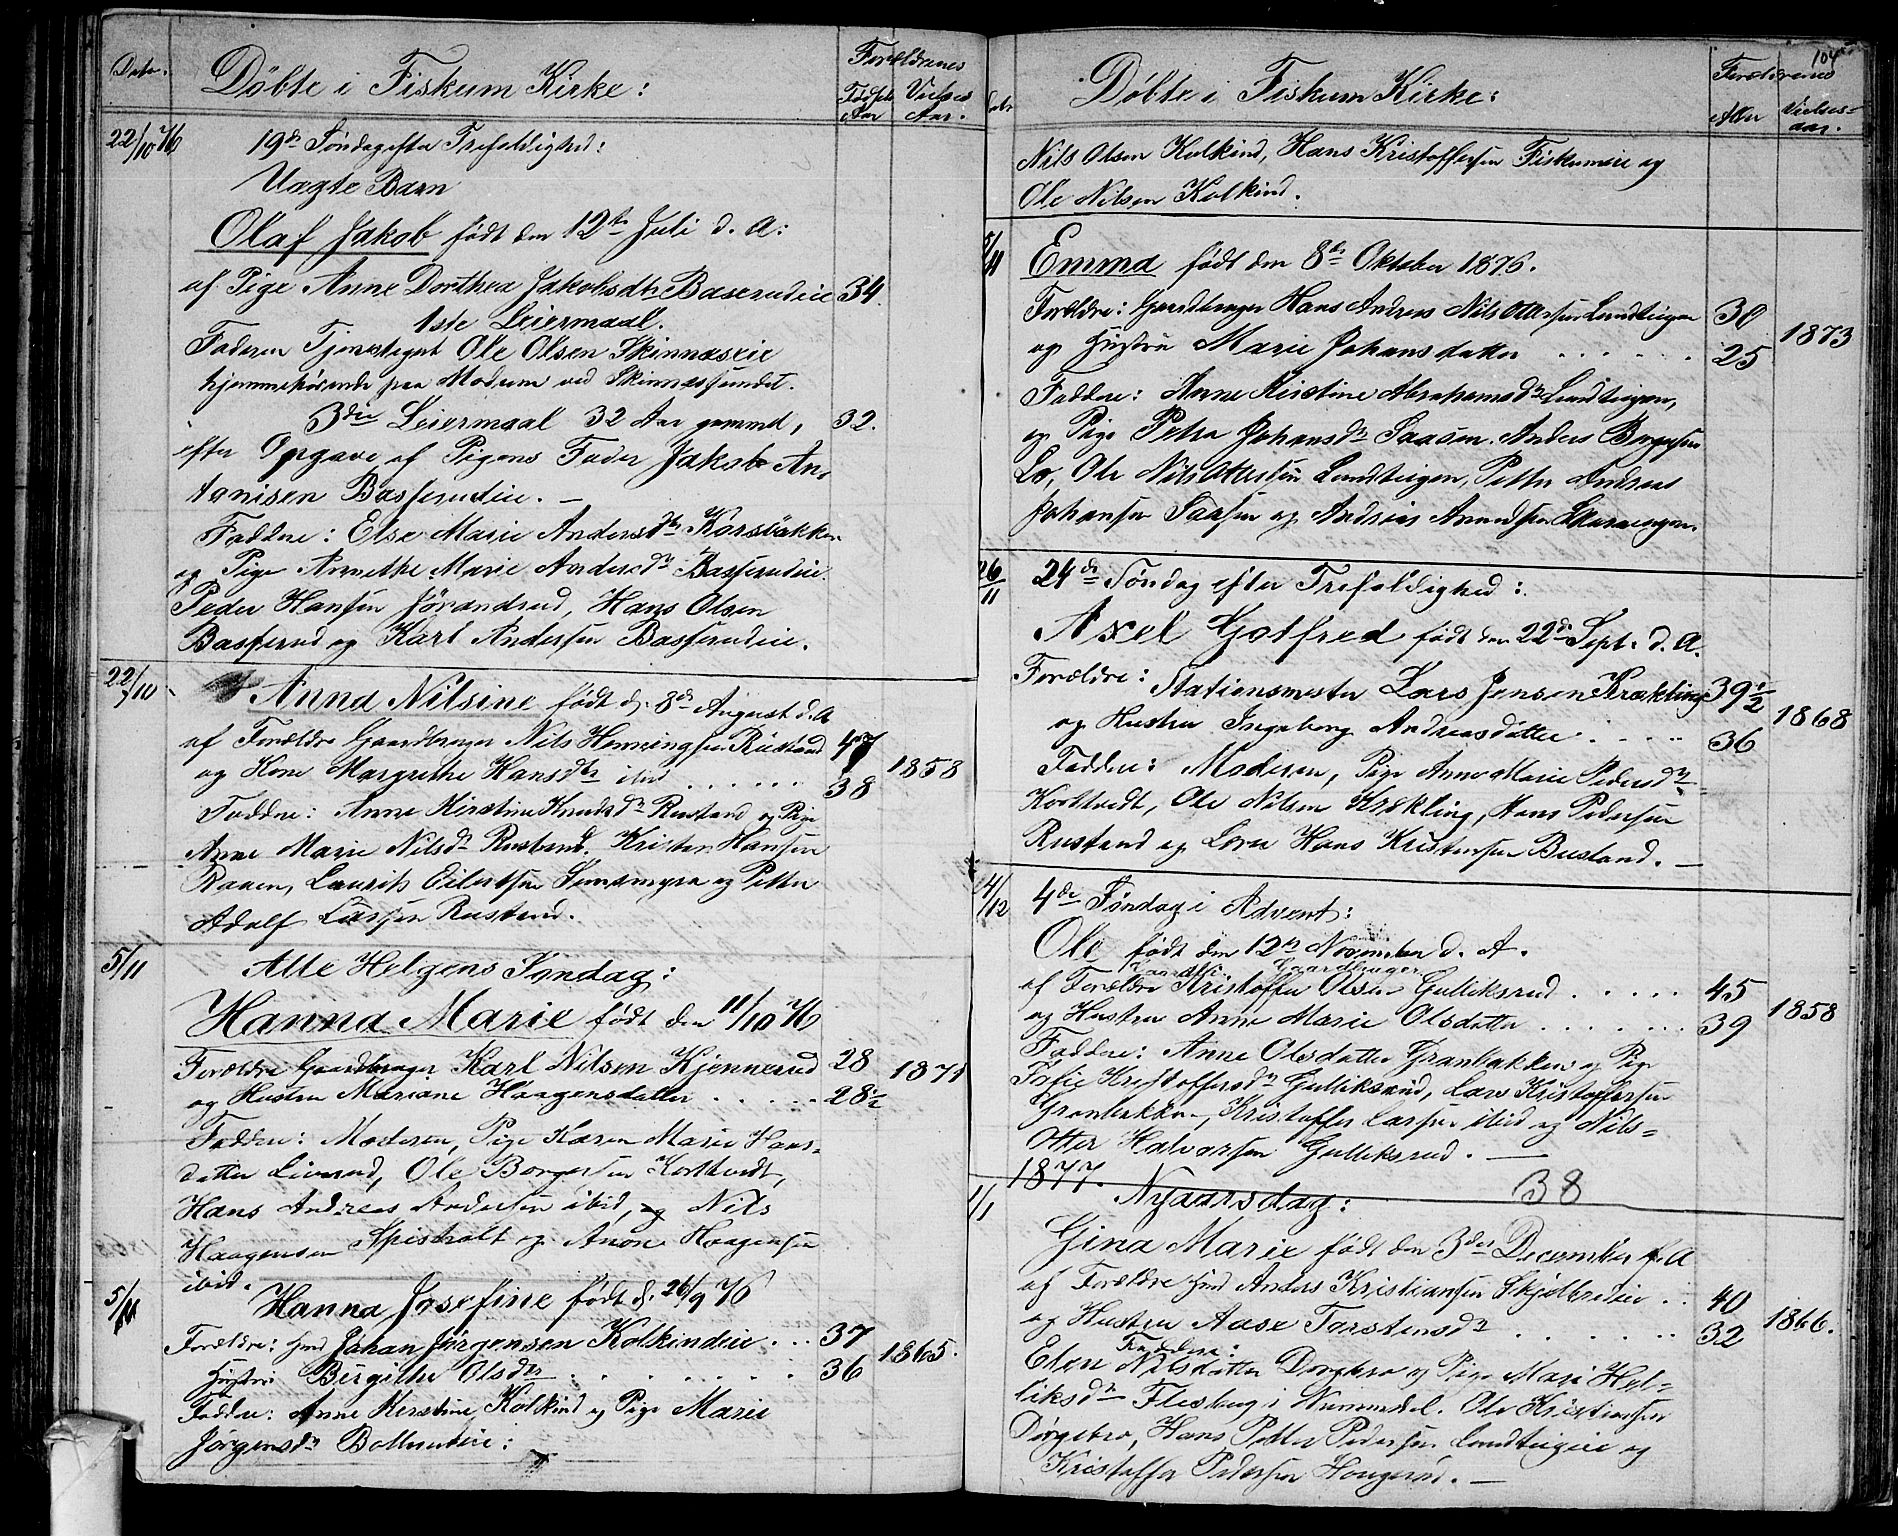 Dato.
Döbte i Fiskum Kirke:
Forældrenes
Födsels Aar
Vielses Aar.
22/10 76
19de Söndag efter Trefoldighed:
Uægte Barn
Olaf Jakob födt den 12te Juli d. A:
af Pige Anne Dorthea Jakobsdtr Baserudeie 34.
1ste Leiermaal.
Faderen Tjenestegut Ole Olsen Skinnæseie
hjemmehörende paa Modum ved Skinnessundet.
3die Leiermaal 32 Aar gammel, 32.
efter Opgave af Pigens Fader Jakob An-
tonisen Basserudeie. —
Faddere: Else Marie Andersdtr Korsbakken
og Pige Annethe Marie Andersdtr Basserudeie.
Peder Hansen Jörandrud, Hans Olsen
Basserud og Karl Andersen Basserudeie.
22/10
Anna Nilsine födt d. 8de August d. A
af Forældre Gaardbruger Nils Henningsen Rustand 47
og Kone Margrethe Hansdtr ibid . . . . . . 38 1858
Faddere: Anne Kirstine Knudsdtr Rustand og Pige
Anne Marie Nilsdtr Rustand, Kristen Hansen
Raaen, Laurits Eilertsen Semsmyra og Petter
Adolf Larsen Rustand.
5/11
Alle Helgens Söndag:
Hanna Marie födt den 11/10 76
Forældre Gaardbruger Karl Nilsen Kjennerud 28
og Hustru Mariane Haagensdatter . . . . . 28½ 1871
Faddere: Moderen, Pige Karen Marie Hans-
datter Liverud, Ole Borgersen Kortvedt,
Hans Andreas Andersen ibid, og Nils
Haagensen Spistholt og Anon Haagensen
ibid.
5/11
Hanna Josefine födt d. 26/9 76
Forældre: Hmd Johan Jörgensen Kolkindeie . . 37
Hustru Birgithe Olsdtr . . . . . . . . 36 1865.
Faddere: Anne Kerstine Kolkind og Pige Marie
Jörgensdtr Bollerudeie:
104
Dato
Döbte i Fiskum Kirke:
Forældrenes
Alder
Vielses-
aar.
Nils Olsen Kolkind, Hans Kristoffersen Fiskumeie og
Ole Nilsen Kolkind.
5/11
Emma födt den 8de Oktober 1876.
Forældre: Gaardbruger Hans Andreas Nils Ottersen Lundteigen 30
og Hustru Marie Johansdatter . . . . . . 25 1873
Faddere: Anne Kirstine Abrahamsdtr Lundteigen,
og Pige Petra Johansdtr Saasen. Anders Borgersen
Lo, Ole Nils Ottersen Lundteigen, Petter Andreas
Johansen Saasen og Andreas Amundsen
26/11
24de Söndag efter Trefoldighed:
Axel Gotfred födt den 22de Sept. d. A.
Forældre: Stationsmester Lars Jensen Krækling 39½
og Hustru Ingeborg Andreasdatter . . . . 36 1868
Faddere: Moderen, Pige Anne Marie Pedersdtr
Kortvedt, Ole Nilsen Krekling, Hans Pedersen
Rustand og Hans Kristensen Bustand. —
4/12
4de Söndag i Advent:
Ole födt den 12te November d. A.
Gaardbruger
af Forældre Kristoffer Olsen Gulliksrud . . . . . 45
og Hustru Anne Marie Olsdatter . . . . . . 39 1858
Faddere: Anne Olsdatter Granbakken og Pige
Sofie Kristoffersdtr Gulliksrud, Lars Kristoffersen
Granbakken, Kristoffer Larsen ibid og Nils-
Otter Halvorsen Gulliksrud. —
1877.
1/1
Nyaarsdag: 38
Gina Marie födt den 3die December f. A
af Forældre Hmd Anders Kristiansen Skjelbredeie . . 40
og Hustru Aase Torstensdtr . . . . . . 32 1866.
Faddere:
Elen Nilsdatter Dorgebro og Pige Mari Hel-
liksdtr Flesberg i Nummedal. Ole Kristiansen
Dörgebro, Hans Petter Pedersen Lundteigeie og
Kristoffer Pedersen Hougerud. —